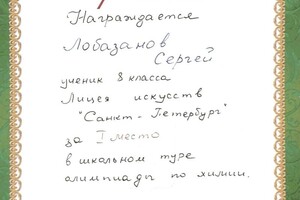 Награждается
Лобазанов
Сергей
ученик 8 класса
Лицея искусств
"Санкт-Петербург"
за I место
в школьном туре
олимпиады по химии.